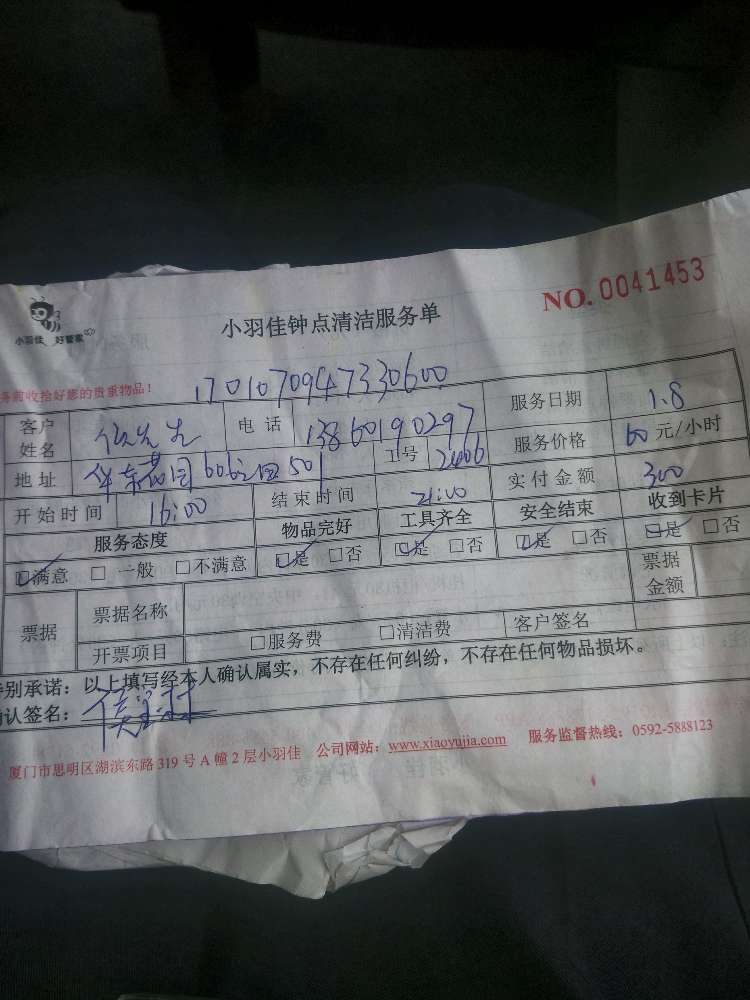 NO. 0041453
小羽佳 好管家
小羽佳钟点清洁服务单
务前收拾好您的贵重物品！
1701070947330600
客户姓名 侯先生 电话 13860190297 服务日期 1.8
地址 华东花园 501 工号 2406 服务价格 60 元/小时
开始时间 16:00 结束时间 21:00 实付金额 300
服务态度 物品完好 工具齐全 安全结束 收到卡片
☑满意 □一般 □不满意 ☑是 □否 ☑是 □否 ☑是 □否 ☑是 □否
票据 票据名称 票据金额
开票项目 □服务费 □清洁费 客户签名
特别承诺：以上填写经本人确认属实，不存在任何纠纷，不存在任何物品损坏。
确认签名：
厦门市思明区湖滨东路 319 号 A 幢 2 层小羽佳 公司网站：www.xiaoyujia.com 服务监督热线：0592-5888123